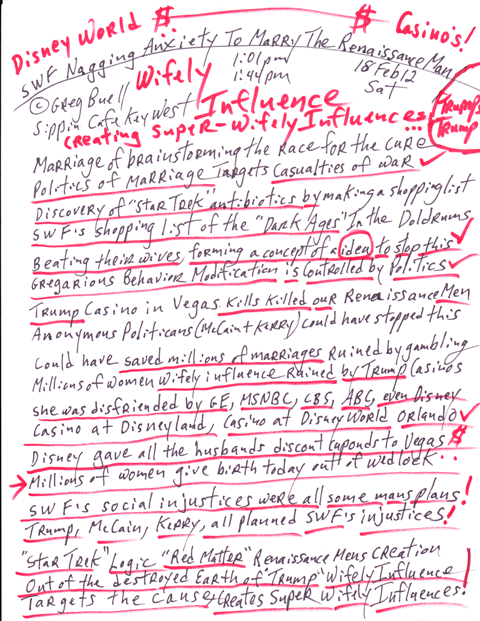 Disney World $ $ Casino's!
SWF Nagging Anxiety To Marry The Renaissance Man
© Greg Buell Wifely 1:01pm 18 Feb 12
1:44pm Sat
Sippin Cafe Key West Influence Trump's
Creating Super-Wifely Influences... Trump
Marriage of brainstorming the Race for the Cure
Politics of Marriage Targets Casualties of war
Discovery of "Star Trek" antibiotics by making a shopping list
SWF's shopping list of the "Dark Ages" In the Doldrums
Beating their wives, forming a concept of a idea to stop this
Gregarious Behavior Modification is controlled by Politics
Trump Casino in Vegas Kills Killed our Renaissance Men
Anonymous Politicans (McCain + Kerry) could have stopped this
Could have saved millions of marriages Ruined by gambling
Millions of women wifely influence Ruined by Trump Casinos
She was disfriended by GE, MSNBC, CBS, ABC, even Disney
Casino at Disneyland, Casino at Disney World Orlando
Disney gave all the husbands discont cuponds to Vegas $
→ Millions of women give birth today out of wedlock..
SWF's social injustices were all some mans plans!
Trump, McCain, Kerry, all planned SWF's injustices!
"Star Trek" Logic "Red Matter" Renaissance Mens Creation
Out of the destroyed Earth of "Trump" Wifely Influence
Targets the cause, Creates Super Wifely Influences!